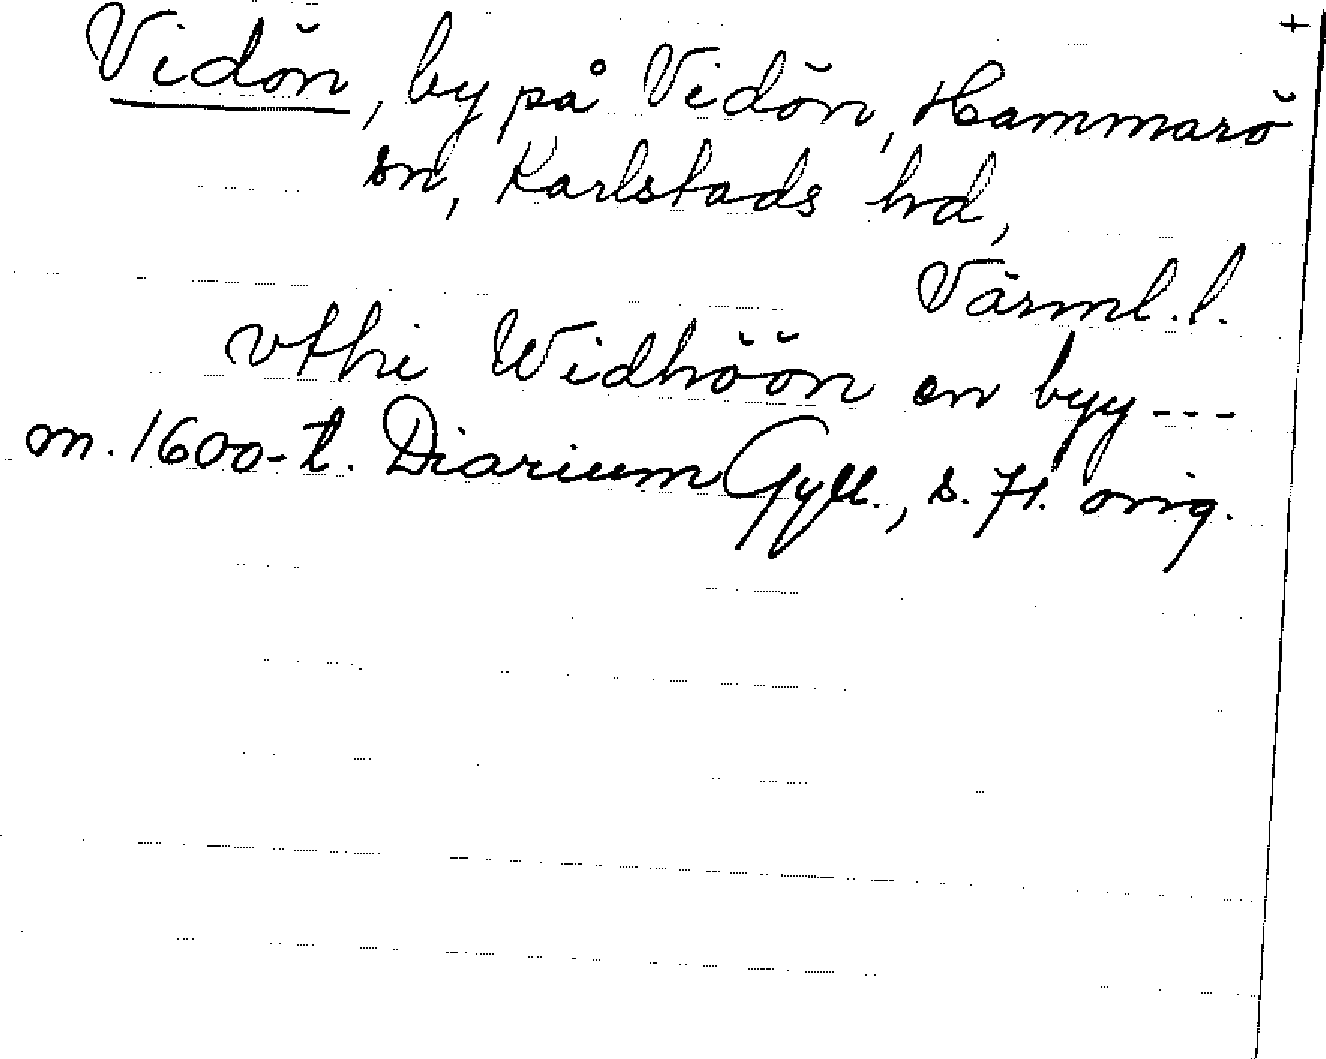 +
Vidön, by på Vidön, Hammarö
sn, Karlstads hd,
Värml.l.
vthi Widhöön en byy---
m. 1600-t. Diarium Gyll., s. 71. orig.